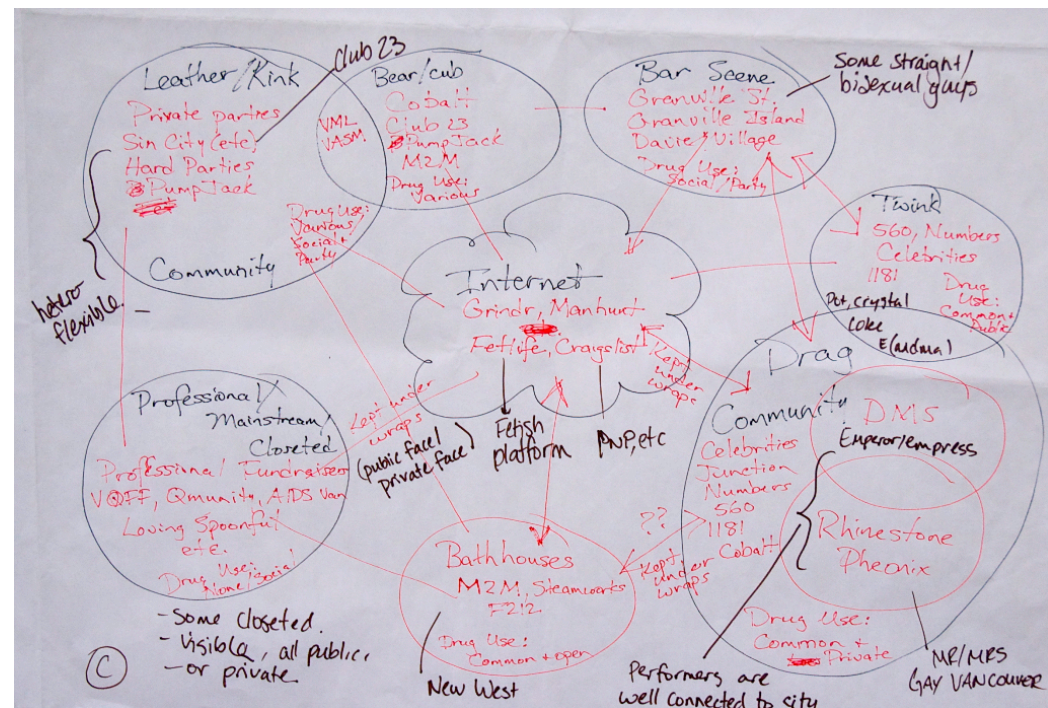 Leather/Kink
Private parties
Sin City (etc)
Hard Parties
PumpJack
Drug Use:
Various
Social +
Party
Community
hetero
flexible
club 23
VML
VASM
Bear/cub
Cobalt
Club 23
PumpJack
M2M
Drug Use:
Various
Bar Scene
Granville St.
Granville Island
Davie Village
Drug Use:
Social/Party
Some straight/
bisexual guys
Twink
560, Numbers
Celebrities
1181
Drug
Use:
Common +
Public
Pot, crystal
coke
E (mdma)
Internet
Grindr, Manhunt
Fetlife, Craigslist
Fetish
platform
PNP, etc
Kept under
wraps
(public face/
private face)
Kept
under
wraps
Professional/
Mainstream/
Closeted
Professional Fundraisers
VQFF, Qmunity, AIDS Van
Loving Spoonful
etc.
Drug Use:
None/Social
- Some closeted.
- Visible, all public,
- or private
C
Bathhouses
M2M, Steamworks
F212
Drug Use:
Common + open
New West
??
Kept
under
wraps
Drag
Community
Celebrities
Junction
Numbers
560
1181
Cobalt
DMS
Emperor/empress
Rhinestone
Pheonix
Drug Use:
Common +
Private
Performers are
well connected to
MR/MRS
GAY VANCOUVER